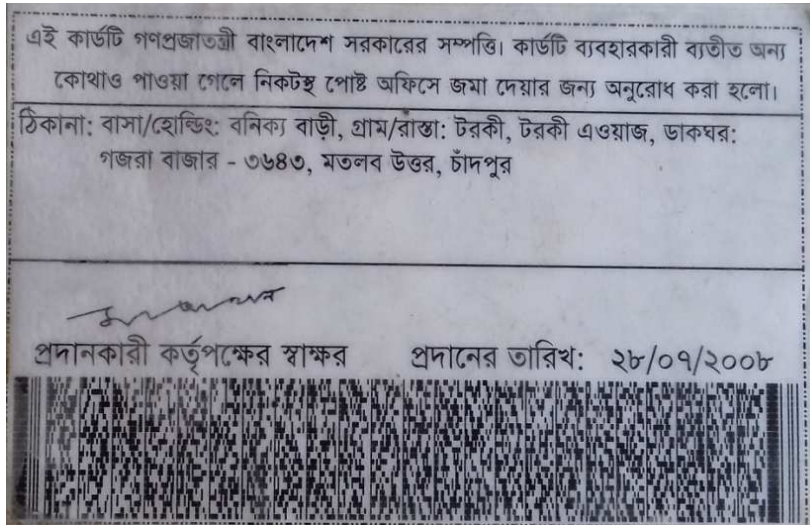 এই কার্ডটি গণপ্রজাতন্ত্রী বাংলাদেশ সরকারের সম্পত্তি। কার্ডটি ব্যবহারকারী ব্যতীত অন্য
কোথাও পাওয়া গেলে নিকটস্থ পোষ্ট অফিসে জমা দেয়ার জন্য অনুরোধ করা হলো।
ঠিকানা: বাসা/হোল্ডিং: বনিক্য বাড়ী, গ্রাম/রাস্তা: টরকী, টরকী এওয়াজ, ডাকঘর:
গজরা বাজার - ৩৬৪৩, মতলব উত্তর, চাঁদপুর
প্রদানকারী কর্তৃপক্ষের স্বাক্ষর প্রদানের তারিখ: ২৮/০৭/২০০৮